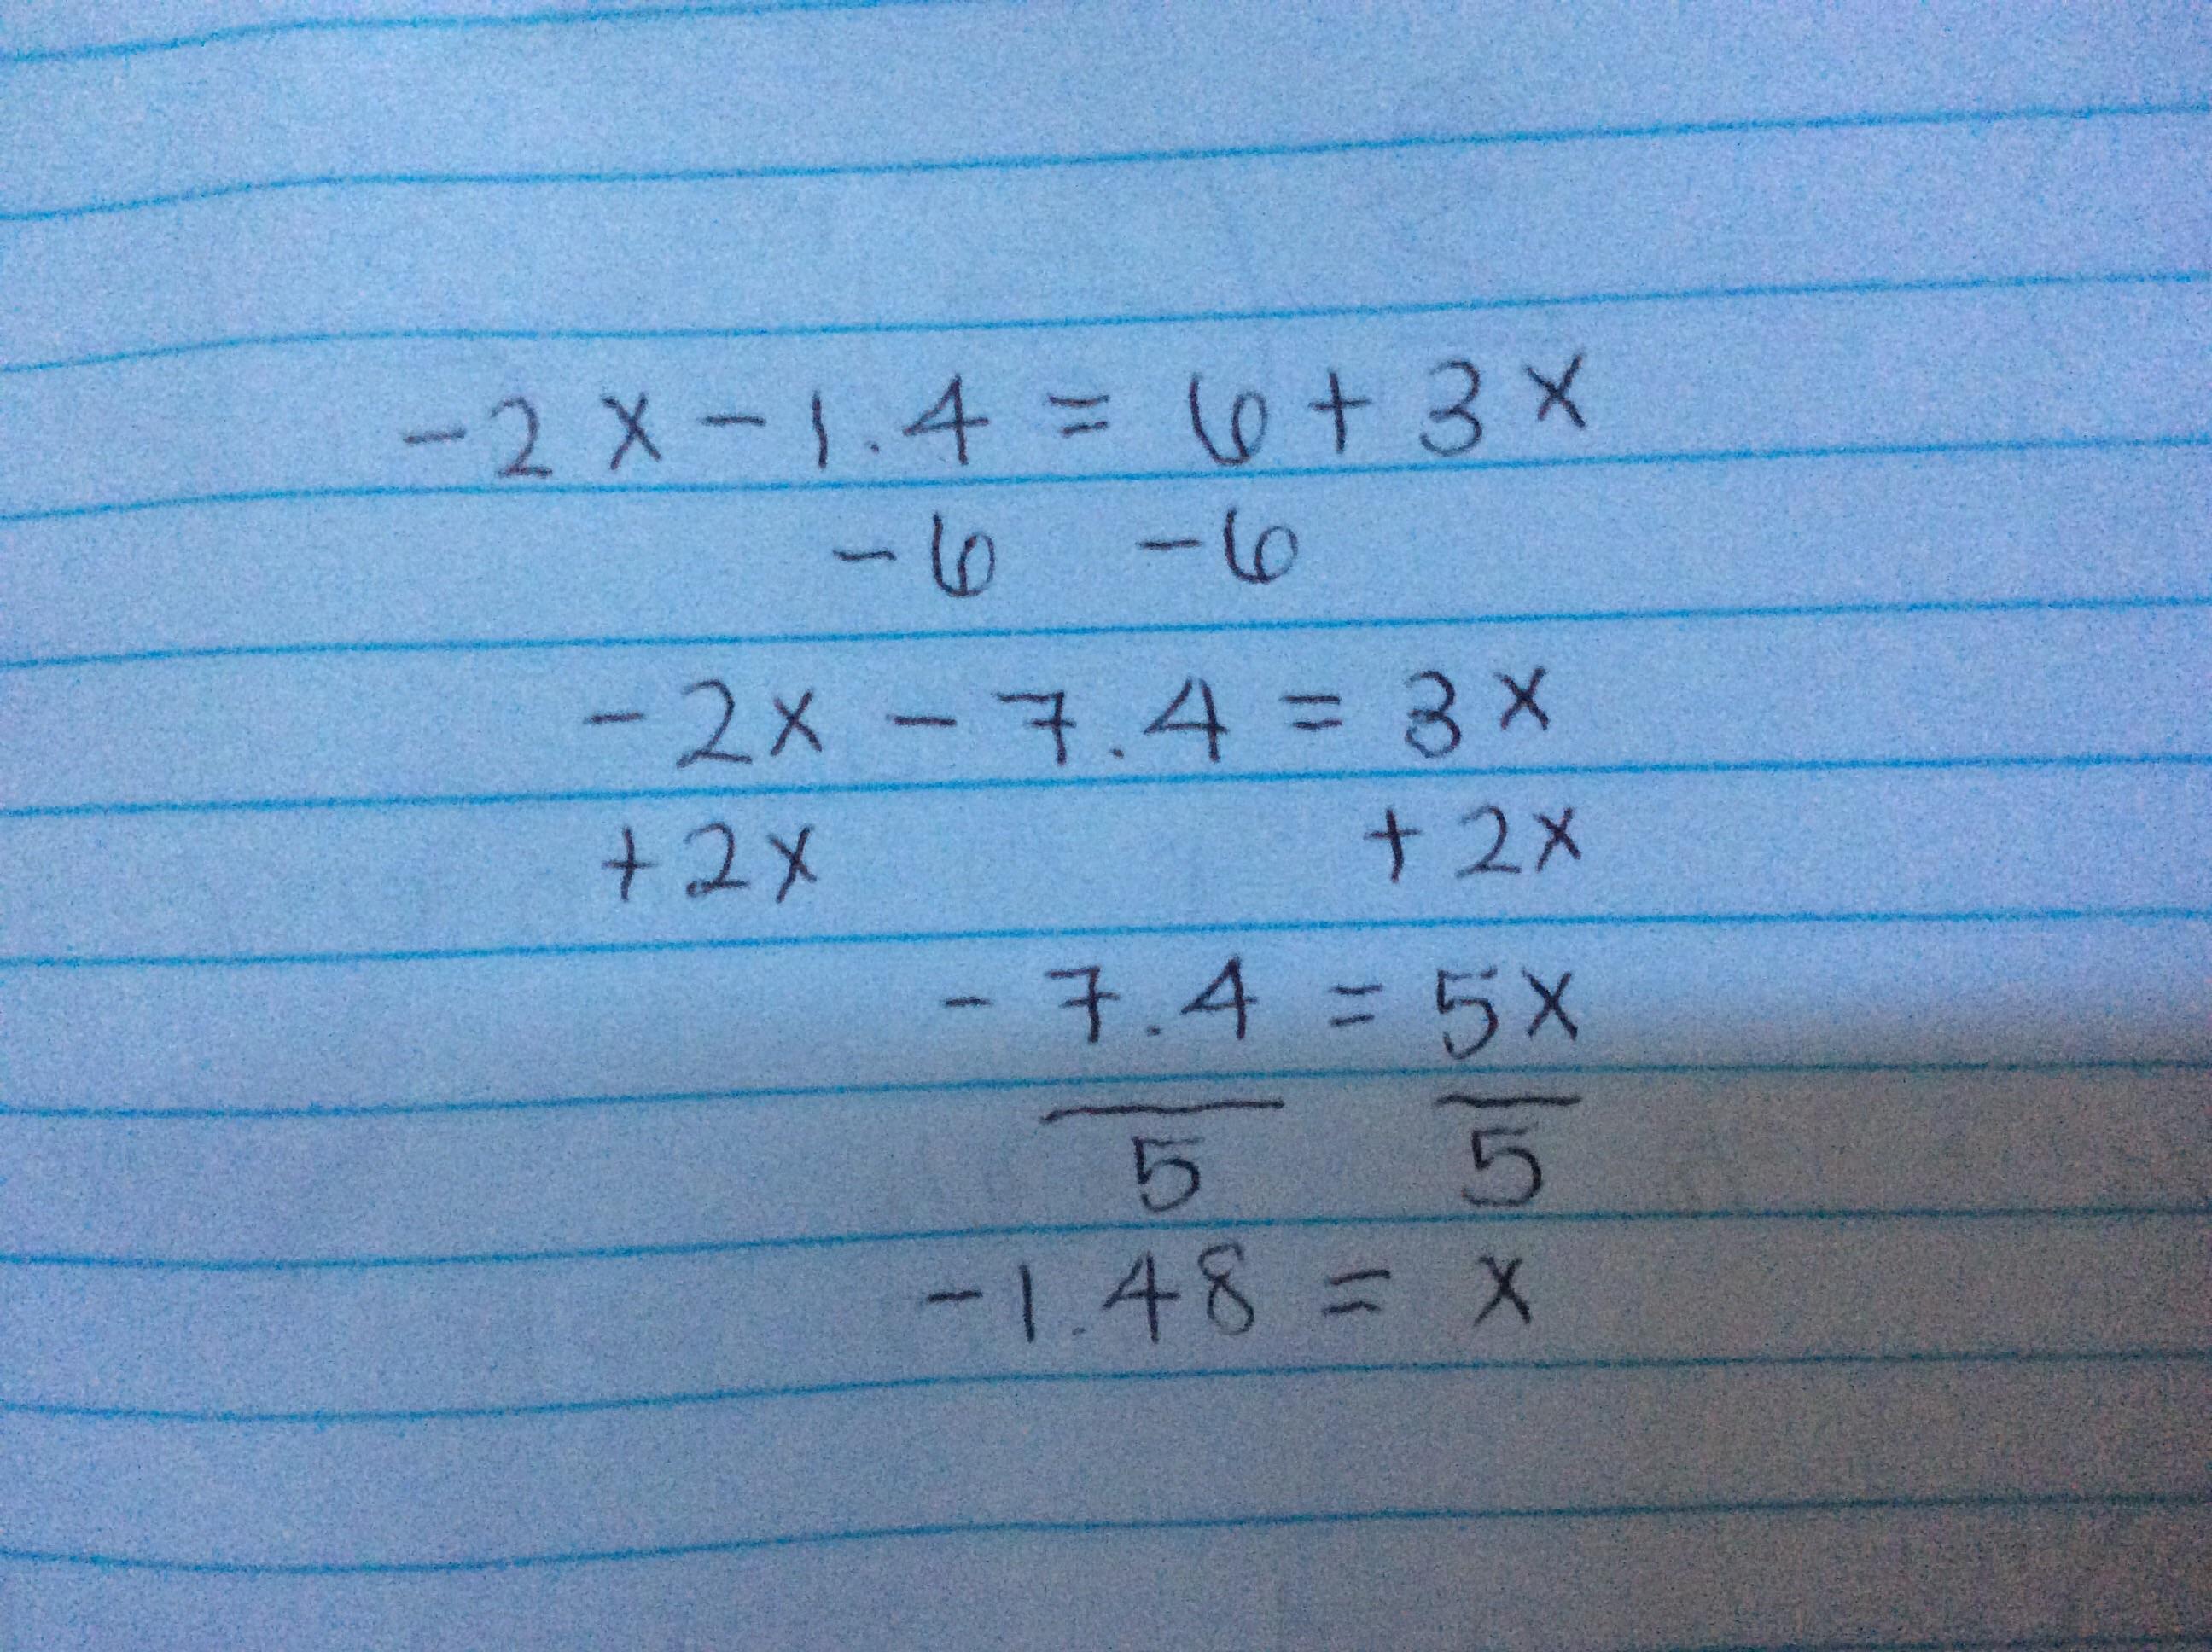 -2x - 1.4 = 6 + 3x
-6 -6
-2x - 7.4 = 3x
+2x +2x
-7.4 = 5x
5 5
-1.48 = x